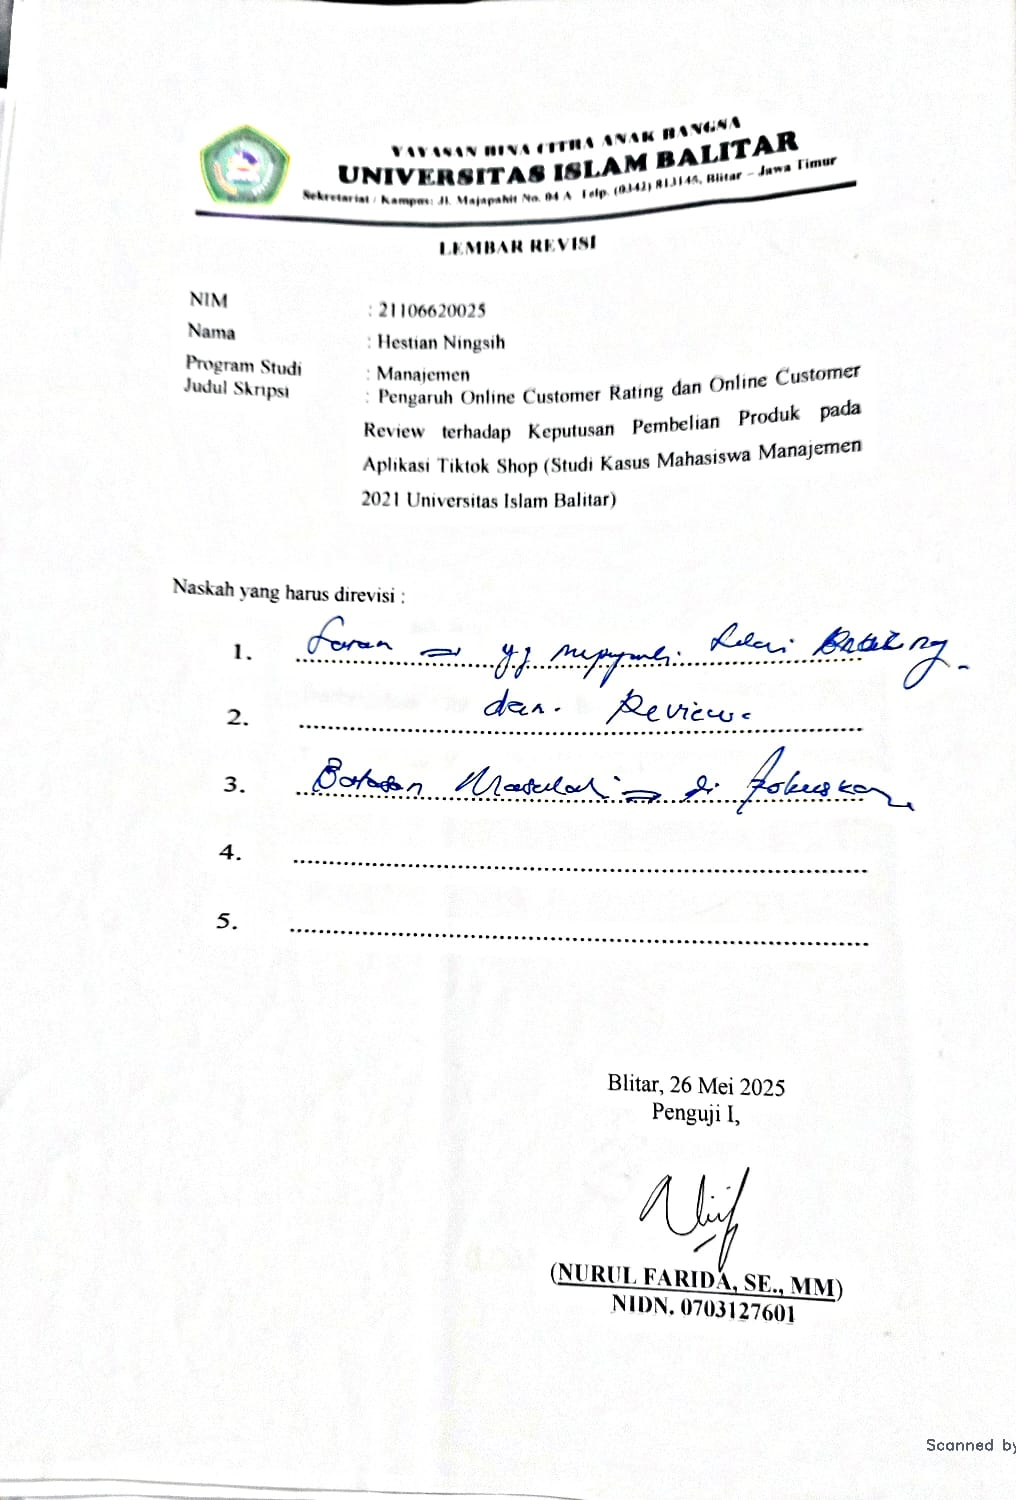 YAYASAN BINA CITRA ANAK BANGSA
UNIVERSITAS ISLAM BALITAR
Sekretariat / Kampus: Jl. Majapahit No. 04 A Telp. (0342) 813145, Blitar – Jawa Timur
LEMBAR REVISI
NIM : 21106620025
Nama : Hestian Ningsih
Program Studi : Manajemen
Judul Skripsi : Pengaruh Online Customer Rating dan Online Customer
Review terhadap Keputusan Pembelian Produk pada
Aplikasi Tiktok Shop (Studi Kasus Mahasiswa Manajemen
2021 Universitas Islam Balitar)
Naskah yang harus direvisi :
1. Saran ⇒ yg
2. dan. Review.
3. Batasan Masalah ⇒ di fokuskan
4.
5.
Blitar, 26 Mei 2025
Penguji I,
(NURUL FARIDA, SE., MM)
NIDN. 0703127601
Scanned by